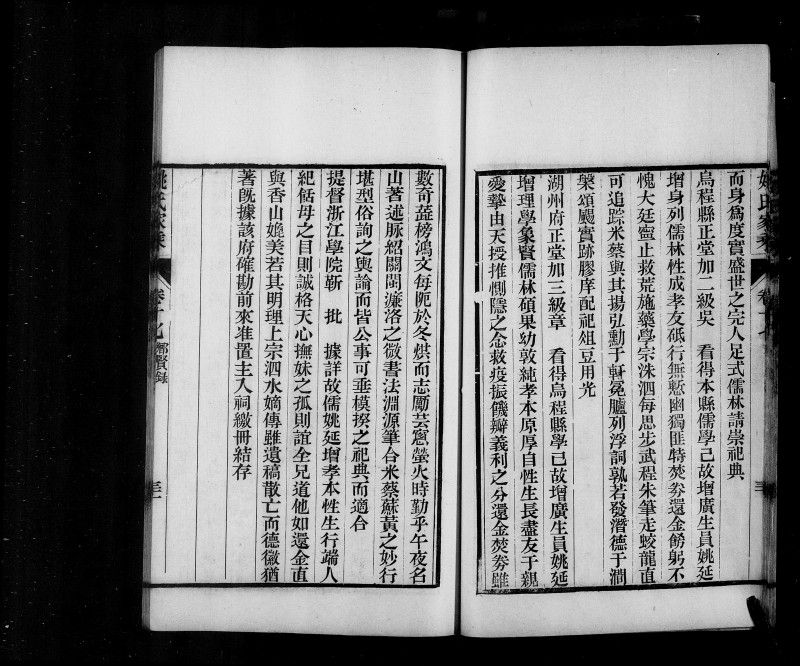 而身爲度實盛世之完人足式儒林請崇祀典
烏程縣正堂加二級吳　看得本縣儒學已故增廣生員姚延
增身列儒林性成孝友砥行無慙幽獨匪特焚劵還金籌躬不
愧大廷寧止救荒施藥學宗洙泗每思步武程朱筆走蛟龍直
可追踪米蔡與其揚弘勳于軒冕臚列浮詞孰若發潛德于澗
槃頌颺實跡膠庠配祀俎豆用光
湖州府正堂加三級章　看得烏程縣學已故增廣生員姚延
增理學象賢儒林碩果幼敦純孝本原厚自性生長盡友于親
愛摯由天授推惻隱之念救疫振饑辦義利之分還金焚劵雖
數奇蕋榜鴻文每阨於冬烘而志勵芸窻螢火時勤乎午夜名
山著述脉紹關閩濂洛之微書法淵源筆合米蔡蘇黃之妙行
堪型俗詢之輿論而皆公事可垂模揆之祀典而適合
提督浙江學院靳　批　據詳故儒姚延增孝本性生行端人
紀恬母之目則誠格天心撫妹之孤則誼全兄道他如還金直
與香山媲美若其明理上宗泗水嫡傳雖遺稿散亡而德徽猶
著既據該府確勘前來准置主入祠繳冊結存
姚氏家乘
卷十七
鄉賢錄